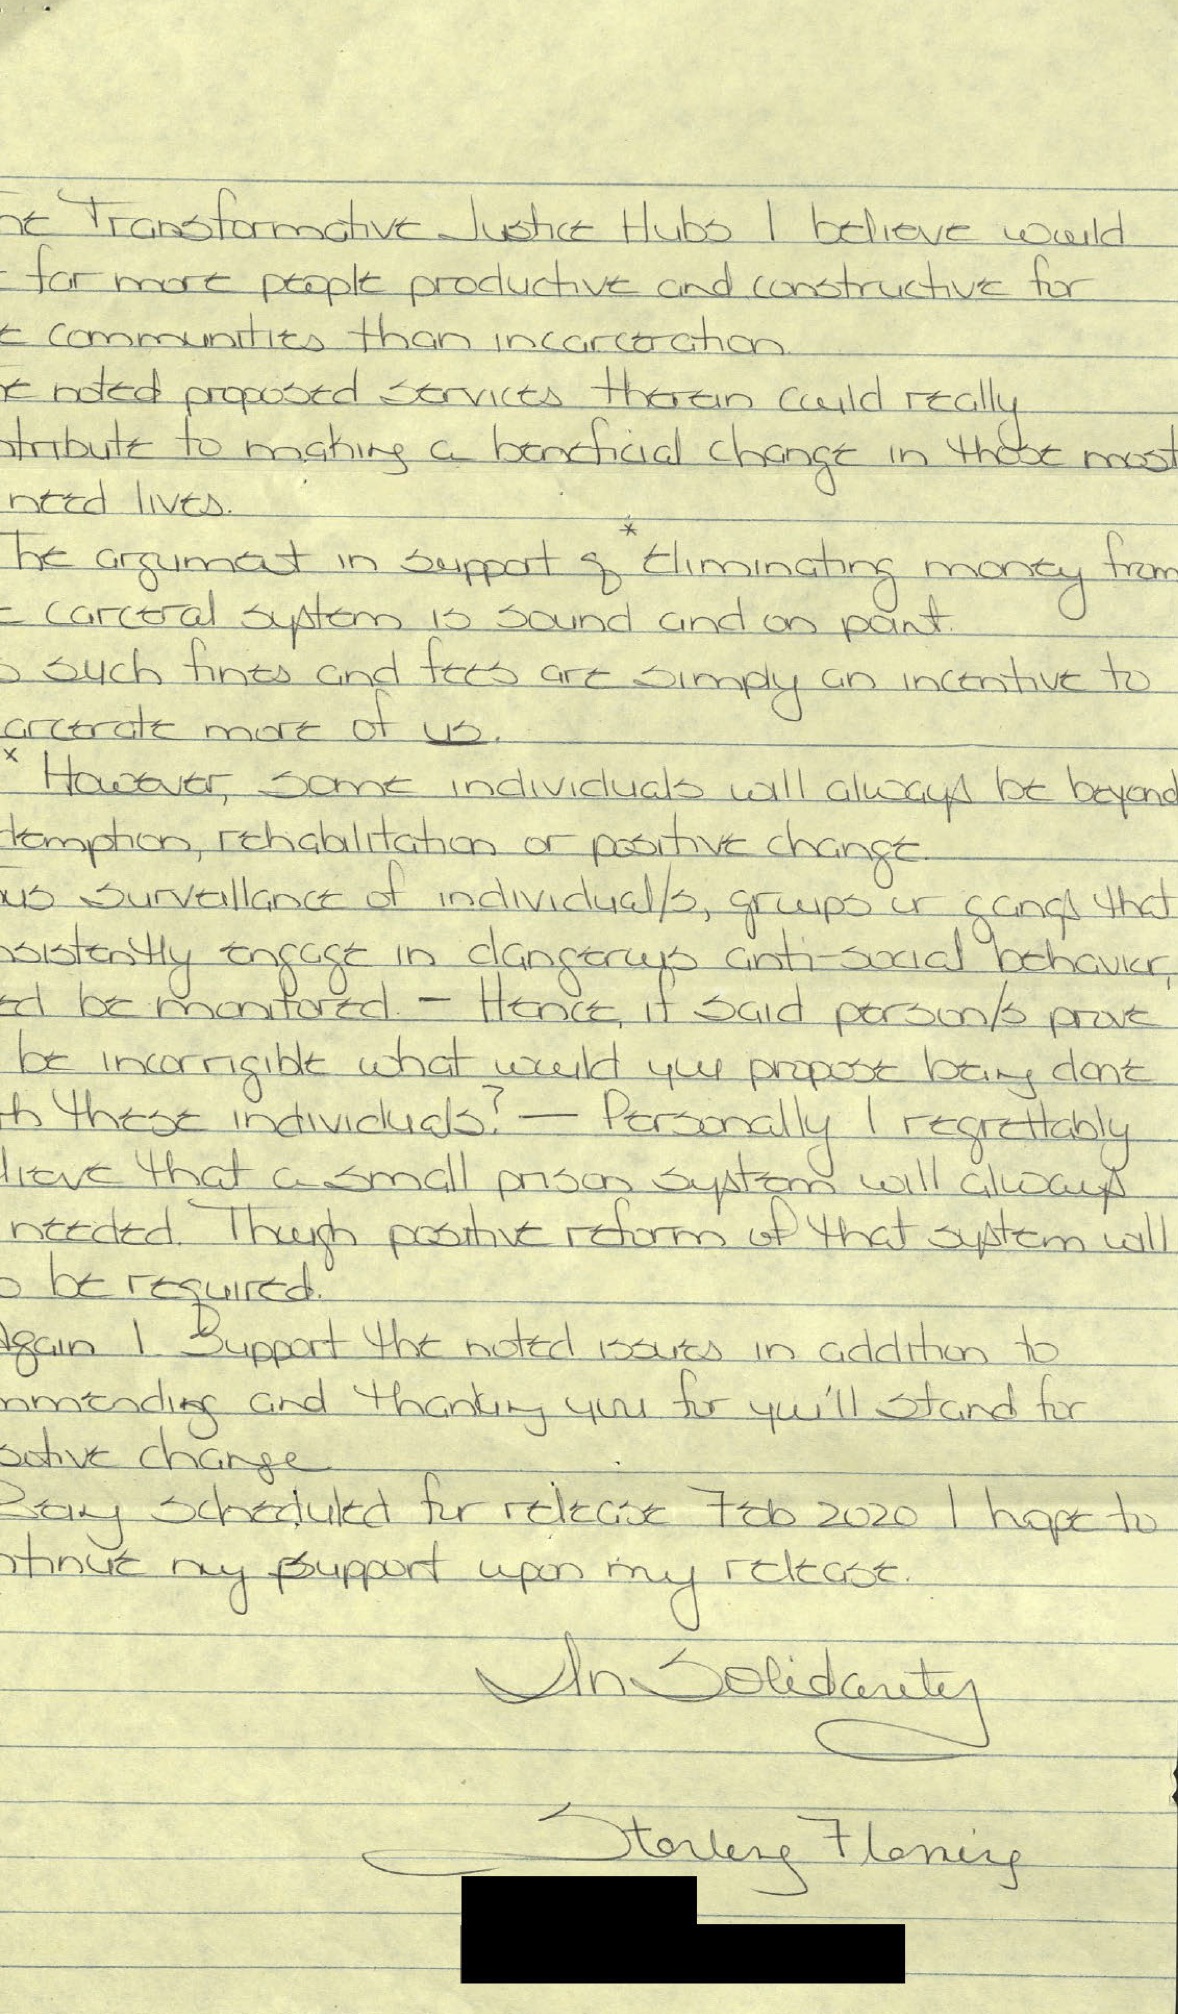 ne Transformative Justice Hubs I believe would
far more people productive and constructive for
e communities than incarceration.
e noted proposed services therein could really
ntribute to making a beneficial change in those most
need lives.
The argument in support of *Eliminating money from
e carceral system is sound and on point.
o such fines and fees are simply an incentive to
arcerate more of us.
* However, some individuals will always be beyond
demption, rehabilitation or positive change.
us surveillance of individual/s, groups or gangs that
nsistently engage in dangerous anti-social behavior,
ed be monitored. - Hence, if said person/s prove
be incorrigible what would you propose being done
th these individuals? — Personally I regrettably
lieve that a small prison system will always
needed. Though positive reform of that system will
o be required.
Again I Support the noted issues in addition to
mmending and thanking you for you'll stand for
sotive change
Being scheduled for release Feb 2020 I hope to
ntinue my support upon my release.
In Solidarity
Sterling Fleming